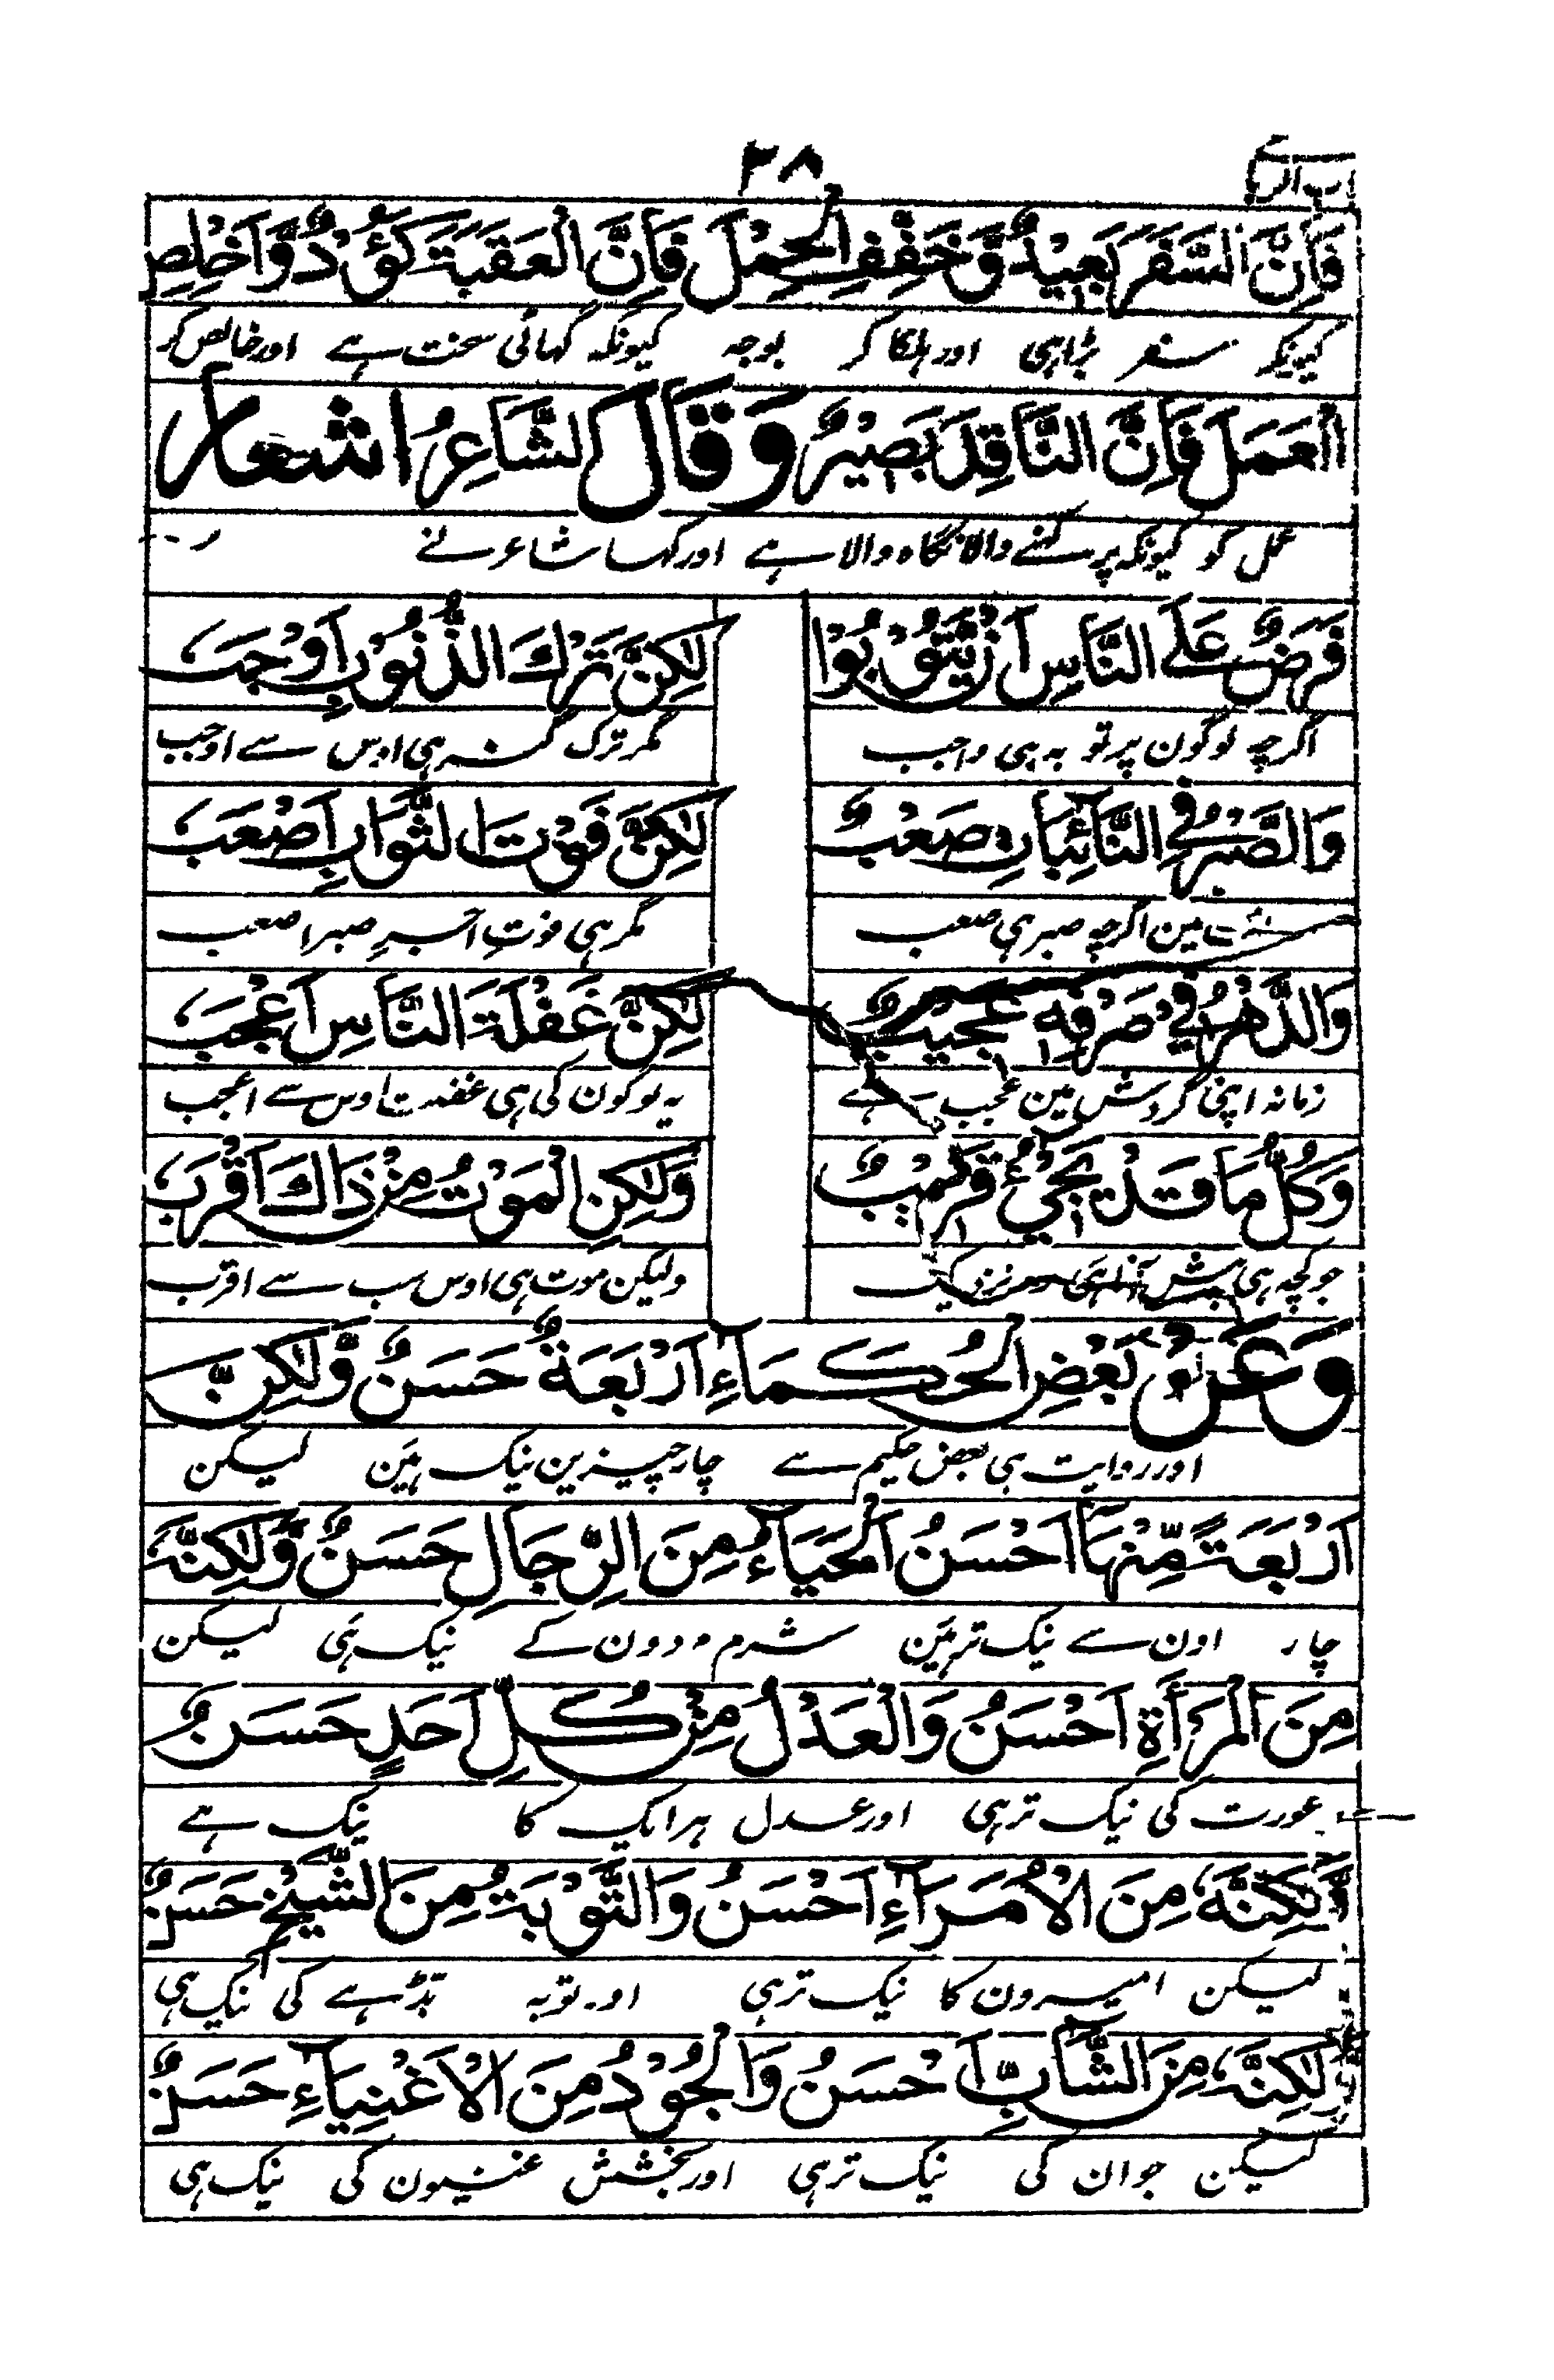 ۳۸
فَاِنَّ السَّفَرَ بَعِيْدٌ وَّخَفِّفِ الْحِمْلَ فَاِنَّ الْعَقَبَةَ كَؤُدٌ وَّاَخْلِصِ
کیونکہ سفر بڑا ہی اور ہلکا کر بوجہ کیونکہ گہائی سخت ہے اور خالص کر
الْعَمَلَ فَاِنَّ النَّاقِدَ بَصِيْرٌ وَقَالَ الشَّاعِرُ اشعار
عمل کو کیونکہ پرکہنے والا نگاہ والا ہے اور کہا شاعر نے
فَرْضٌ عَلَى النَّاسِ اَنْ يَّتُوْبُوْا لٰكِنَّ تَرْكَ الذُّنُوْبِ اَوْجَبُ
اگرچہ لوگون پر توبہ ہی واجب مگر ترک گنہ ہی اوس سے اوجب
وَالصَّبْرُ فِى النَّائِبَاتِ صَعْبٌ لٰكِنَّ فَوْتَ الثَّوَابِ اَصْعَبُ
مین اگرچہ صبر ہی صعب مگر ہی فوتِ اجرِ صبر اصعب
وَالدَّهْرُ فِىْ صَرْفِهٖ عَجِيْبٌ لٰكِنَّ غَفْلَةَ النَّاسِ اَعْجَبُ
زمانہ اپنی گردش مین عجب ہے پہ لوگون کی ہی غفلت اوس سے اعجب
وَكُلُّ مَا قَدْ يَجِىْءُ قَرِيْبٌ وَلٰكِنِ الْمَوْتُ مِنْ ذَاكَ اَقْرَبُ
جو کچہ ہی پیش آنا ہی نزدیک ولیکن موت ہی اوس سب سے اقرب
وَعَنْ بَعْضِ الْحُكَمَاءِ اَرْبَعَةٌ حَسَنٌ وَّلٰكِنَّ
اور روایت ہی بعض حکیم سے چار چیزین نیک ہین لیکن
اَرْبَعَةً مِّنْهَا اَحْسَنُ اَلْحَيَاءُ مِنَ الرِّجَالِ حَسَنٌ وَّلٰكِنَّهٗ
چار اون سے نیک تر ہین شرم مردون کے نیک ہی لیکن
مِنَ الْمَرْأَةِ اَحْسَنُ وَالْعَدْلُ مِنْ كُلِّ اَحَدٍ حَسَنٌ
عورت کی نیک تر ہی اور عدل ہر ایک کا نیک ہے
وَّلٰكِنَّهٗ مِنَ الْاُمَرَاءِ اَحْسَنُ وَالتَّوْبَةُ مِنَ الشَّيْخِ حَسَنٌ
لیکن امیرون کا نیک تر ہی اور توبہ بڈہے کی نیک ہی
لٰكِنَّهٗ مِنَ الشَّابِّ اَحْسَنُ وَالْجُوْدُ مِنَ الْاَغْنِيَاءِ حَسَنٌ
لیکن جوان کی نیک تر ہی اور بخشش غنیون کی نیک ہی